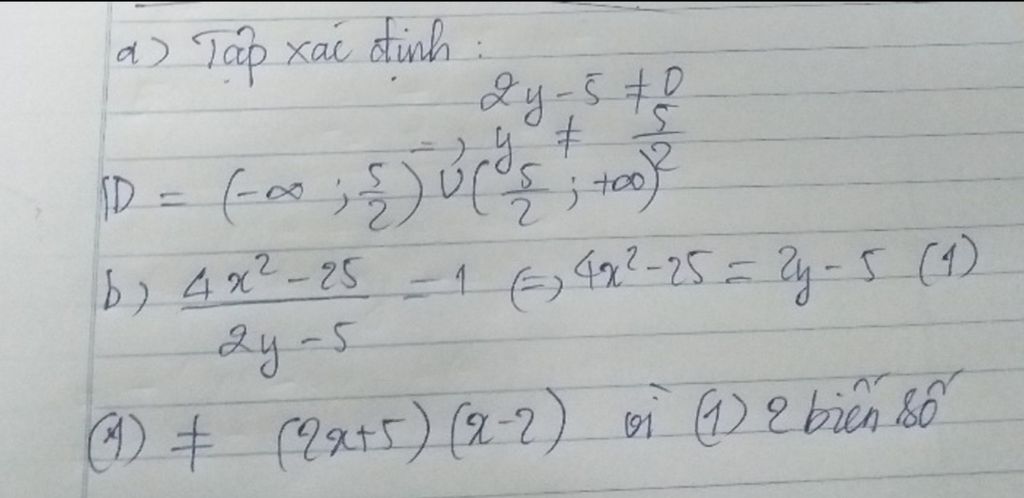 a) Tập xác định :
2y - 5 ≠ 0
=> y ≠ 5/2
D = (-∞ ; 5/2) ∪ (5/2 ; +∞)
b) (4x² - 25)/(2y - 5) = 1 <=> 4x² - 25 = 2y - 5 (1)
(1) ≠ (2x+5)(x-2) vì (1) 2 biến số